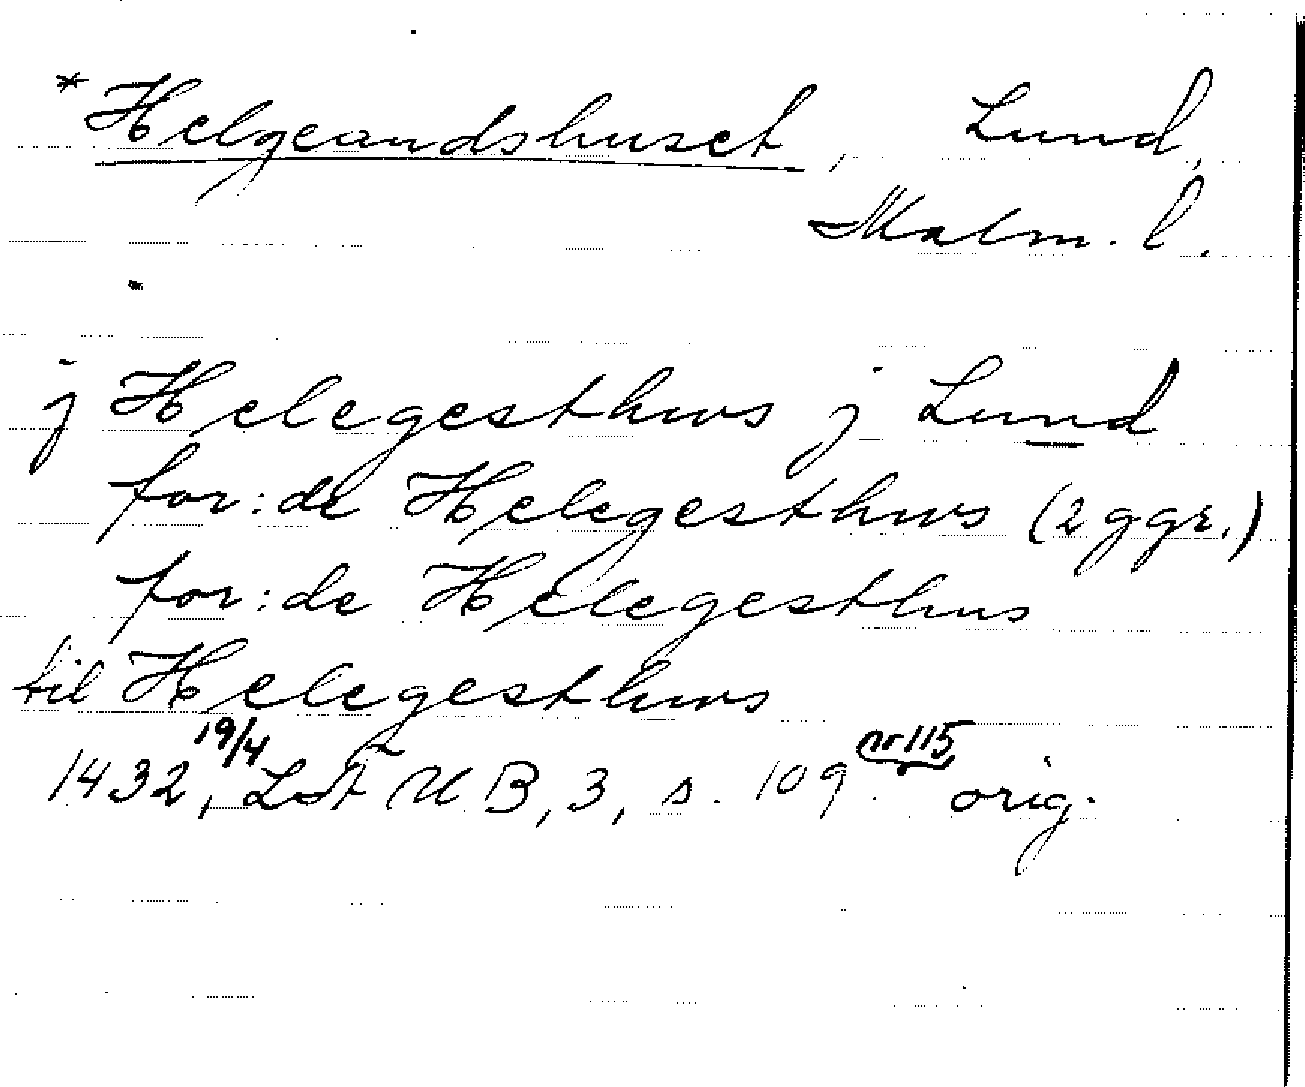 *Helgeandshuset, Lund,
Malm. l.
j Helegesthws j Lund
for:de Helegesthws (2 ggr.)
for:de Helegesthus
til Helegesthws
1432, 19/4 LdT UB, 3, s. 109. nr 115 orig.